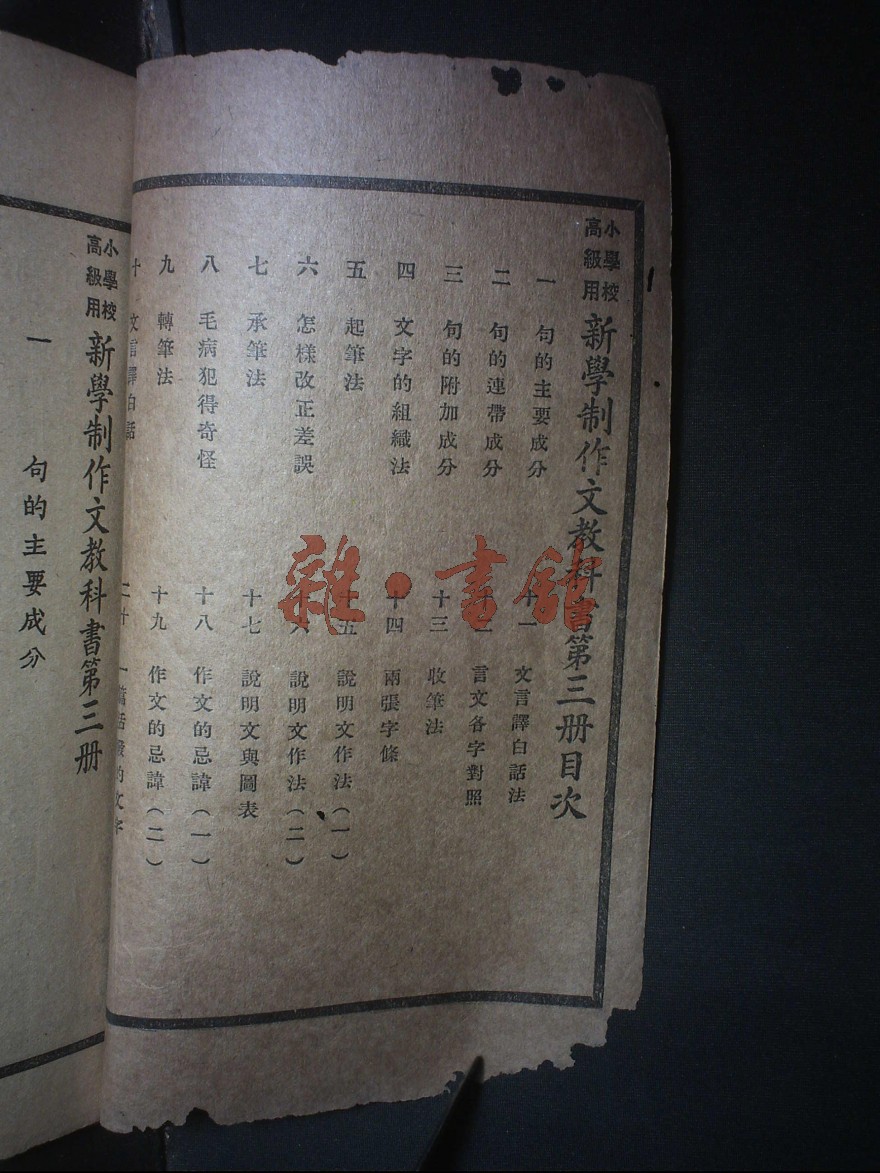 小學校高級用
新學制作文教科書第三册目次
一 句的主要成分
二 句的連帶成分
三 句的附加成分
四 文字的組織法
五 起筆法
六 怎樣改正差誤
七 承筆法
八 毛病犯得奇怪
九 轉筆法
十 文言譯白話
十一 文言譯白話法
十二 言文各字對照
十三 收筆法
十四 兩張字條
十五 說明文作法(一)
十六 說明文作法(二)
十七 說明文與圖表
十八 作文的忌諱(一)
十九 作文的忌諱(二)
二十 一篇活潑的文字
小學校高級用
新學制作文教科書第三册
一 句的主要成分
雜·書館